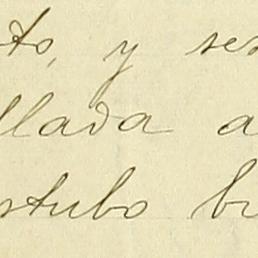 to, y se
llada a
stubo b